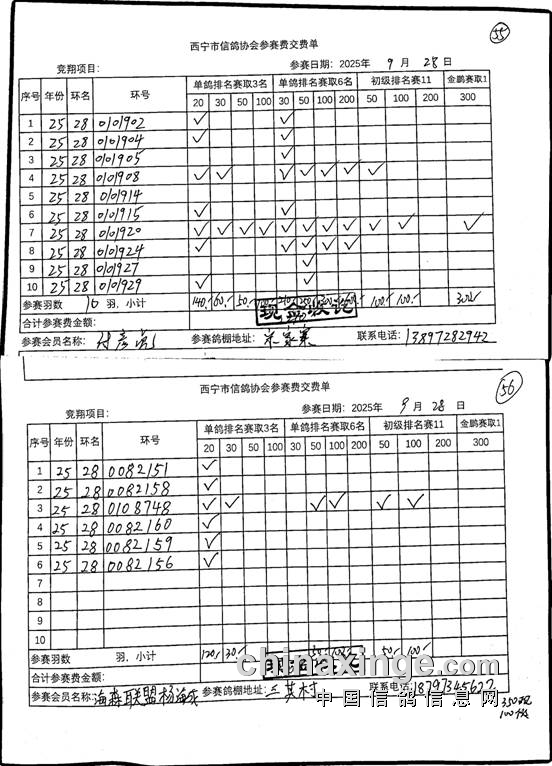 55
西宁市信鸽协会参赛费交费单
竞翔项目： 参赛日期：2025年 9 月 28 日
序号 年份 环名 环号 单鸽排名赛取3名 单鸽排名赛取6名 初级排名赛11 金鹏赛取1
20 30 50 100 30 50 100 200 50 100 200 300
1 25 28 0101902 ✓ ✓
2 25 28 0101904 ✓ ✓
3 25 28 0101905 ✓
4 25 28 0101908 ✓ ✓ ✓ ✓ ✓ ✓ ✓
5 25 28 0101914
6 25 28 0101915 ✓ ✓
7 25 28 0101920 ✓ ✓ ✓ ✓ ✓ ✓ ✓ ✓ ✓ ✓ ✓
8 25 28 0101924 ✓ ✓ ✓ ✓ ✓
9 25 28 0101927 ✓
10 25 28 0101929 ✓ ✓
参赛羽数 10 羽，小计 140.- 60.- 50.- 100.- 100.- 300.-
合计参赛费金额：
参赛会员名称： 参赛鸽棚地址： 联系电话：13897282942
56
西宁市信鸽协会参赛费交费单
竞翔项目： 参赛日期：2025年 9 月 28 日
序号 年份 环名 环号 单鸽排名赛取3名 单鸽排名赛取6名 初级排名赛11 金鹏赛取1
20 30 50 100 30 50 100 200 50 100 200 300
1 25 28 0082151 ✓
2 25 28 0082158 ✓
3 25 28 0108748 ✓ ✓ ✓ ✓ ✓ ✓
4 25 28 0082160 ✓
5 25 28 0082159 ✓
6 25 28 0082156 ✓
7
8
9
10
参赛羽数 羽，小计 120.- 30.- 50.- 100.- 50.- 100.-
合计参赛费金额：
chinaxinge.com
参赛会员名称：海森联盟杨海 参赛鸽棚地址：三其村 联系电话：18797345622
中国信鸽信息网
350现
100